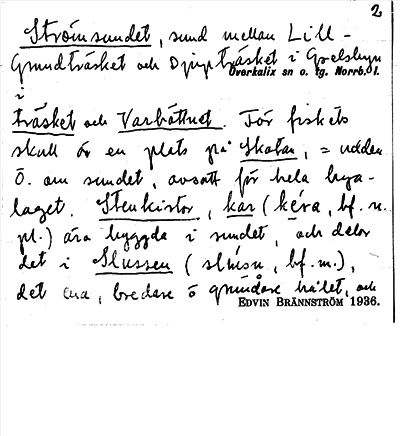 2
Strömsundet, sund mellan Lill-
Grundträsket och Djupträsket i Gyelsbyn
Överkalix sn o. tg. Norrb. l.
i
träsket och Varbåttnet. För fiskets
skull är en plats på Skatan, = udden
Ö. om sundet, avsatt för hela bya-
laget. Stenkistor, kar (kéra, bf. n.
pl.) äro byggda i sundet, och delar
det i Slussen (slúsn, bf. m.),
det ena, bredare o grundare hålet, och
EDVIN BRÄNNSTRÖM 1936.